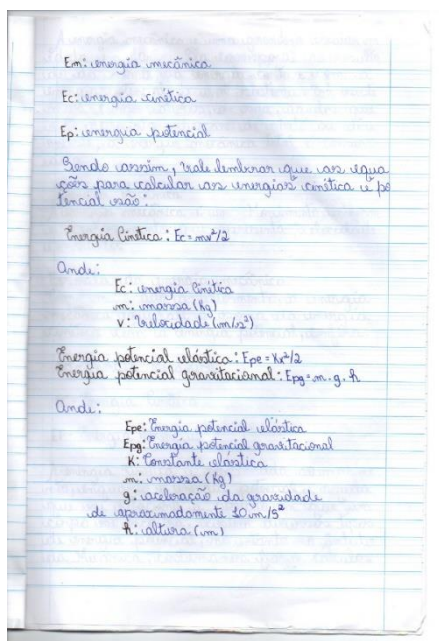 Em: energia mecânica
Ec: energia cinética
Ep: energia potencial
Sendo assim, vale lembrar que as equa
ções para calcular as energias cinética e po
tencial são:
Energia Cinética: Ec = mv²/2
Onde:
Ec: energia Cinética
m: massa (Kg)
v: Velocidade (m/s²)
Energia potencial elástica: Epe = Kx²/2
Energia potencial gravitacional: Epg = m.g.h
Onde:
Epe: Energia potencial elástica
Epg: Energia potencial gravitacional
K: Constante elástica
m: massa (Kg)
g: aceleração da gravidade
de aproximadamente 10 m/s²
h: altura (m)